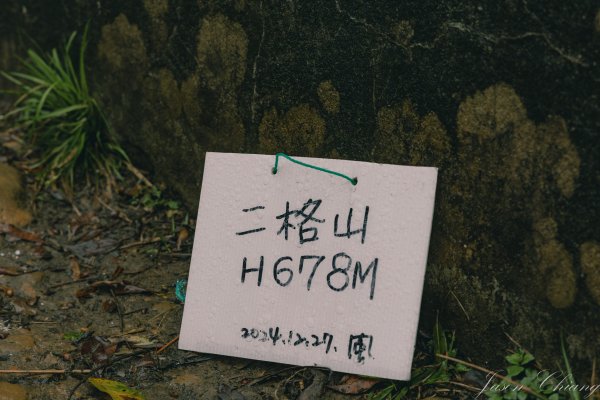 二格山
H678M
2024.12.27. 風
Jason Chiang